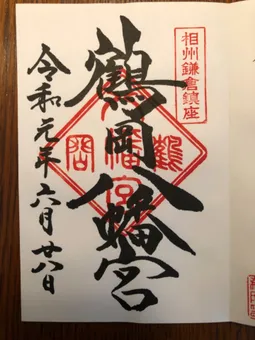 相州鎌倉鎮座
鶴岡八幡宮
鶴岡
八幡宮
令和元年六月廿八日